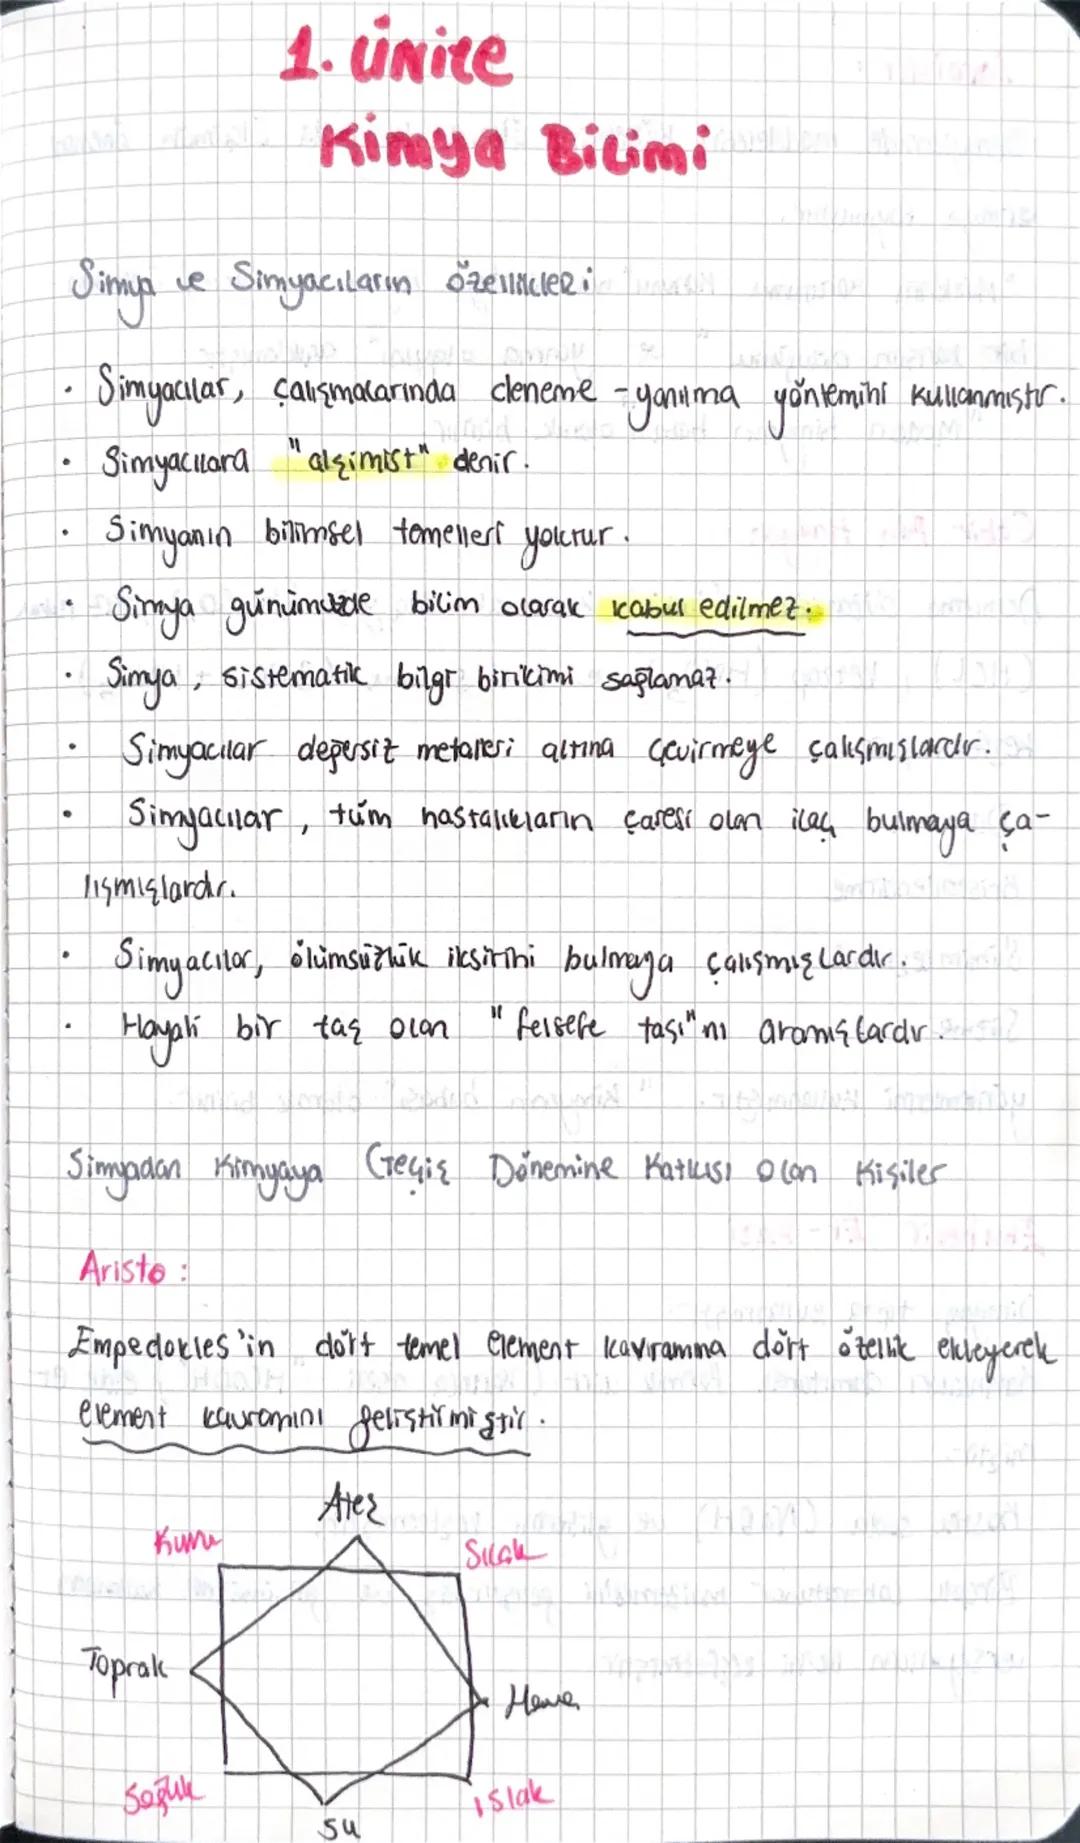 1. Ünite
Kimya Bilimi
Simya ve Simyacıların özellikleri
• Simyacılar, çalışmalarında deneme - yanılma yöntemini kullanmıştır.
• Simyacılara "alşimist" denir.
• Simyanın bilimsel temelleri yoktur.
• Simya günümüzde bilim olarak kabul edilmez.
• Simya, sistematik bilgi birikimi sağlamaz.
• Simyacılar değersiz metalleri altına çevirmeye çalışmışlardır.
• Simyacılar, tüm hastalıkların çaresi olan ilaç bulmaya ça-
lışmışlardır.
• Simyacılar, ölümsüzlük iksirini bulmaya çalışmışlardır.
• Hayali bir taş olan "felsefe taşı"nı aramışlardır.
Simyadan Kimyaya Geçiş Dönemine Katkısı Olan Kişiler
Aristo :
Empedokles'in dört temel element kavramına dört özellik ekleyerek
element kavramını geliştirmiştir.
Ateş
Kuru Sıcak
Toprak
Hava
Soğuk ıslak
su